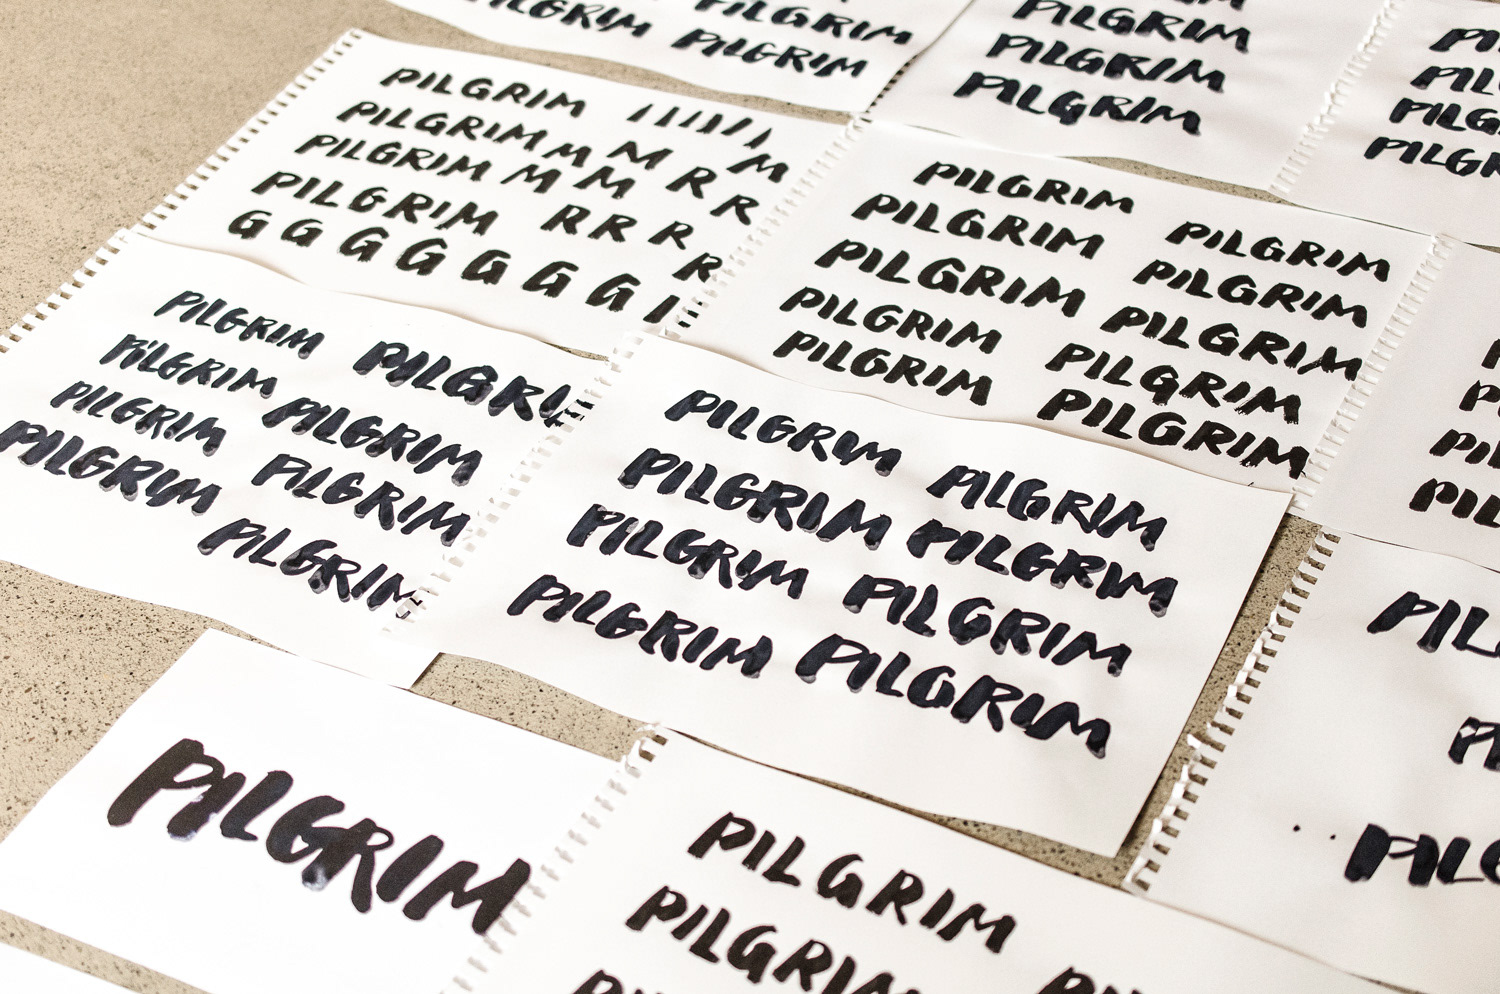 PILGRIM PILGRIM
PILGRIM PILGRIM
PILGRIM
PILGRIM
PILGRIM
PILGRIM
PILGRIM
PILGRIM
PILGRIM I I I I I I I
PILGRIM M M M
PILGRIM M M R R
PILGRIM R R R R
G G G G G G G G
PILGRIM
PILGRIM PILGRIM
PILGRIM PILGRIM
PILGRIM PILGRIM
PILGRIM PILGRIM
PILGRIM
PILGRIM
PILGRIM PILGRIM
PILGRIM PILGRIM
PILGRIM PILGRIM
PILGRIM
PILGRIM PILGRIM
PILGRIM PILGRIM
PILGRIM PILGRIM
PILGRIM PILGRIM
PIL
PIL
PILG
PILGRIM
PILGRIM
PILGRIM